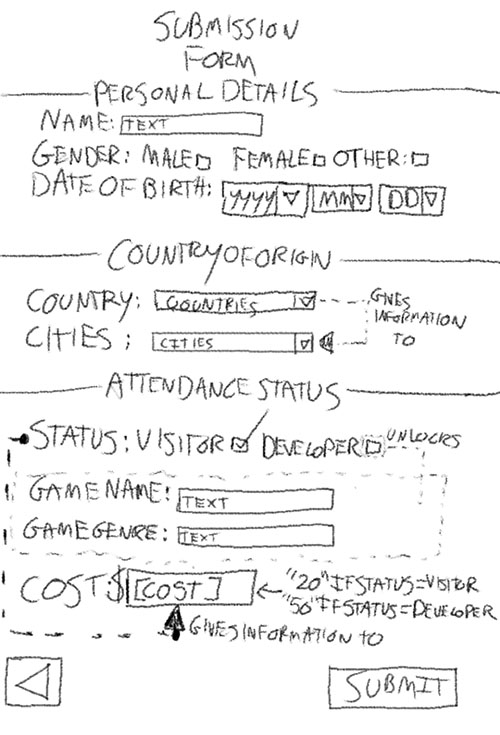 SUBMISSION
FORM
PERSONAL DETAILS
NAME: TEXT
GENDER: MALE FEMALE OTHER:
DATE OF BIRTH: YYYY MM DD
COUNTRY OF ORIGIN
COUNTRY: COUNTRIES GIVES
INFORMATION
CITIES: CITIES TO
ATTENDANCE STATUS
STATUS: VISITOR DEVELOPER UNLOCKS
GAME NAME: TEXT
GAME GENRE: TEXT
COST:$ [COST] "20" IF STATUS=VISITOR
"50" IF STATUS=DEVELOPER
GIVES INFORMATION TO
SUBMIT